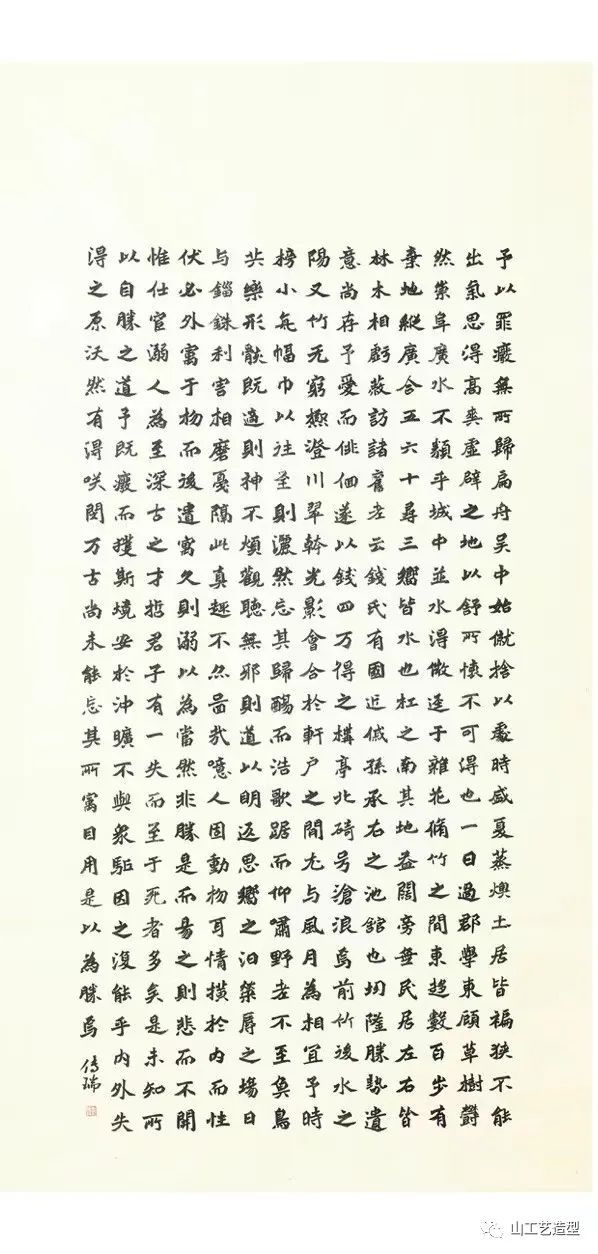 予以罪癈無所歸扁舟吳中始僦捨以處時盛夏蒸燠土居皆褊狹不能
出氣思得高爽虛辟之地以舒所懷不可得也一日過郡學東顧草樹鬱
然崇阜廣水不類乎城中並水得微逕于雜花脩竹之間東趨數百步有
棄地縱廣合五六十尋三嚮皆水也杠之南其地益闊旁無民居左右皆
林木相虧蔽訪諸舊老云錢氏有國近戚孫承右之池館也坳隆勝勢遺
意尚存予愛而徘徊遂以錢四万得之構亭北碕号滄浪焉前竹後水之
陽又竹无窮極澄川翠幹光影會合於軒户之間尤与風月為相宜予時
榜小舟幅巾以往至則灑然忘其歸觴而浩歌踞而仰嘯野老不至魚鳥
共樂形骸既適則神不煩觀聽無邪則道以明返思嚮之汩榮辱之場日
与錙銖利害相磨戛隔此真趣不亦啚哉噫人固動物耳情橫於內而性
伏必外寓于物而後遣寓久則溺以為當然非勝是而易之則悲而不開
惟仕宦溺人為至深古之才哲君子有一失而至于死者多矣是未知所
以自勝之道予既癈而獲斯境安於沖曠不與衆驅因之復能乎內外失
得之原沃然有得咲閔万古尚未能忘其所寓目用是以為勝焉
傳瑞
山工艺造型